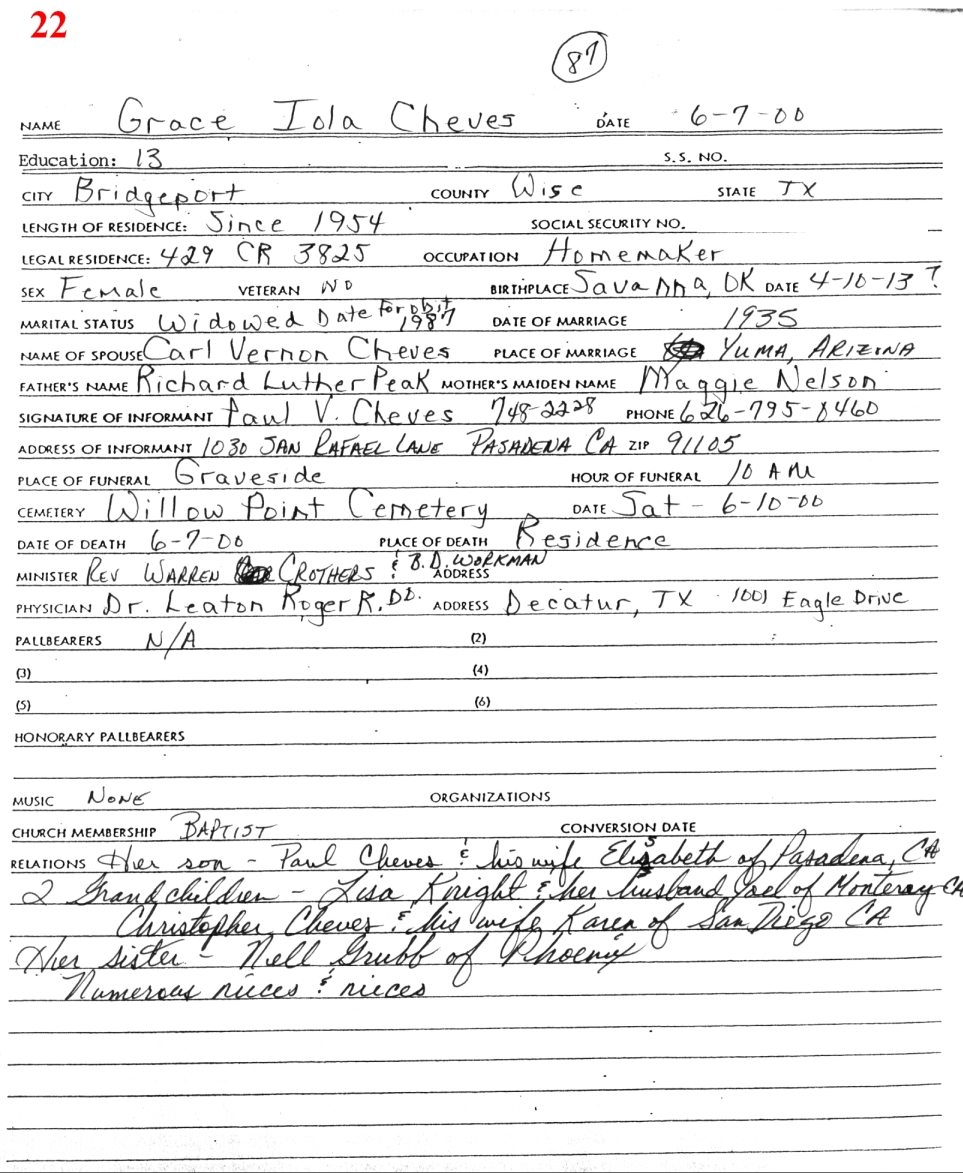 22
87
NAME Grace Iola Cheves DATE 6-7-00
Education: 13 S.S. NO.
CITY Bridgeport COUNTY Wise STATE TX
LENGTH OF RESIDENCE: Since 1954 SOCIAL SECURITY NO.
LEGAL RESIDENCE: 429 CR 3825 OCCUPATION Homemaker
SEX Female VETERAN NO BIRTHPLACE Savanna, OK DATE 4-10-13 ?
MARITAL STATUS Widowed Date For obit 1987 DATE OF MARRIAGE 1935
NAME OF SPOUSE Carl Vernon Cheves PLACE OF MARRIAGE YUMA, ARIZINA
FATHER'S NAME Richard Luther Peak MOTHER'S MAIDEN NAME Maggie Nelson
SIGNATURE OF INFORMANT Paul V. Cheves 748-2228 PHONE 626-795-8460
ADDRESS OF INFORMANT 1030 SAN RAFAEL LANE PASADENA CA ZIP 91105
PLACE OF FUNERAL Graveside HOUR OF FUNERAL 10 AM
CEMETERY Willow Point Cemetery DATE Sat - 6-10-00
DATE OF DEATH 6-7-00 PLACE OF DEATH Residence
MINISTER REV WARREN CROTHERS & B.D. WORKMAN ADDRESS
PHYSICIAN Dr. Leaton Roger R. DO. ADDRESS Decatur, TX 1001 Eagle Drive
PALLBEARERS N/A (2)
(3) (4)
(5) (6)
HONORARY PALLBEARERS
MUSIC NONE ORGANIZATIONS
CHURCH MEMBERSHIP BAPTIST CONVERSION DATE
RELATIONS Her son - Paul Cheves & his wife Elisabeth of Pasadena, CA
2 Grandchildren - Lisa Knight & her husband Joel of Monteray CA
Christopher Cheves & his wife Karen of San Diego CA
Her sister - Nell Grubb of Phoenix
Numerous nieces & nieces